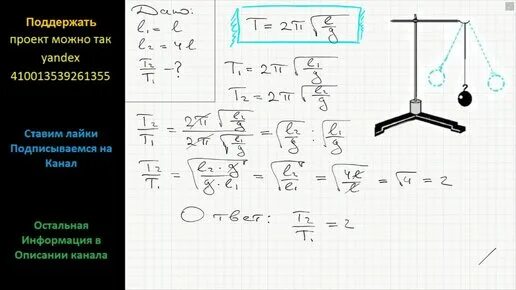 Поддержать
проект можно так
yandex
410013539261355
Ставим лайки
Подписываемся на
Канал
Остальная
Информация в
Описании канала
Дано:
l₁ = l
l₂ = 4l
T₂/T₁ - ?
T = 2π√(l/g)
T₁ = 2π√(l₁/g)
T₂ = 2π√(l₂/g)
T₂/T₁ = 2π√(l₂/g) / 2π√(l₁/g) = √(l₂/g) : √(l₁/g)
T₂/T₁ = √(l₂·g / g·l₁) = √(l₂/l₁) = √(4l/l) = √4 = 2
Ответ: T₂/T₁ = 2